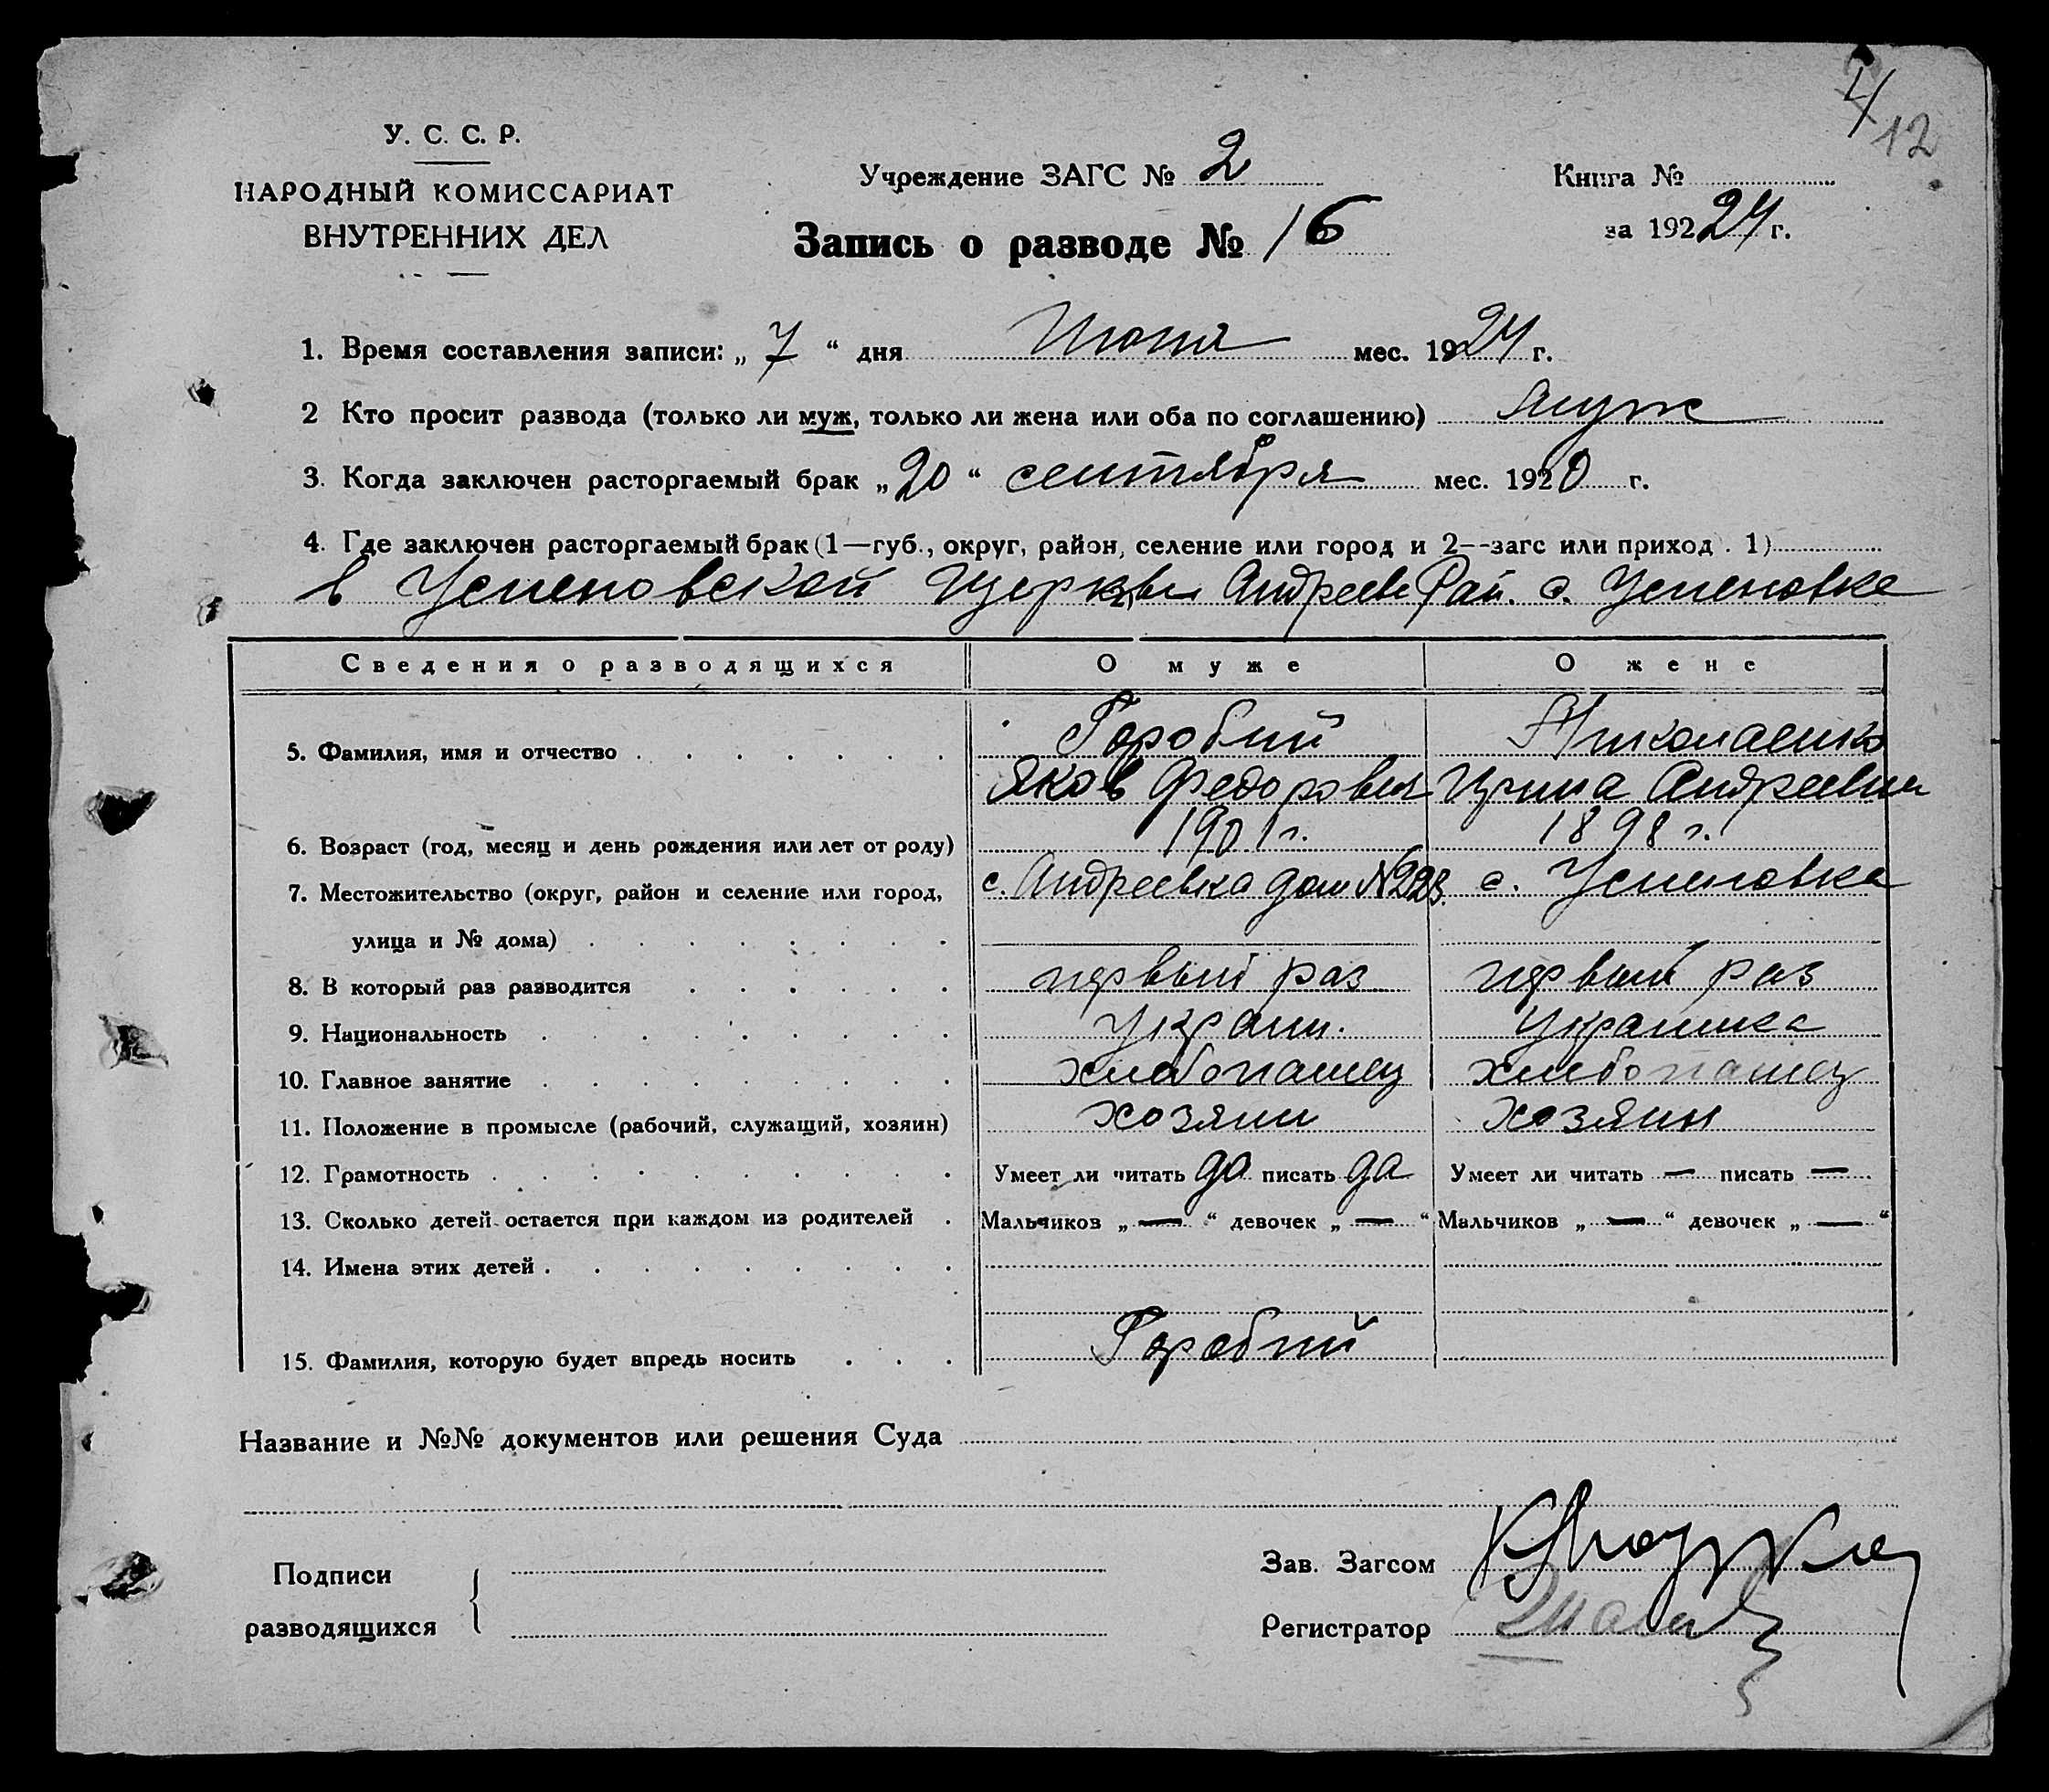 4
12
У. С. С. Р.
НАРОДНЫЙ КОМИССАРИАТ
ВНУТРЕННИХ ДЕЛ
Учреждение ЗАГС № 2
Книга №
за 192 24 г.
Запись о разводе № 16
1. Время составления записи: „ 7 “ дня Июня мес. 1924 г.
2 Кто просит развода (только ли муж, только ли жена или оба по соглашению) муж
3. Когда заключен расторгаемый брак „20“ сентября мес. 1920 г.
4. Где заключен расторгаемый брак (1—губ., округ, район, селение или город и 2--загс или приход . 1)
в Успеновской Церкви Андреев Рай. с. Успеновка
Сведения о разводящихся О муже О жене
5. Фамилия, имя и отчество Горобий Николаенко
Яков Федорович Ирина Андреевна
6. Возраст (год, месяц и день рождения или лет от роду) 1901 г. 1898 г.
7. Местожительство (округ, район и селение или город, с. Андреевка дом №223. с. Успеновка
улица и № дома)
8. В который раз разводится первый раз первый раз
9. Национальность Украин. Украинка
10. Главное занятие хлебопашец хлебопашец
11. Положение в промысле (рабочий, служащий, хозяин) хозяин хозяин
12. Грамотность Умеет ли читать да писать да Умеет ли читать — писать —
13. Сколько детей остается при каждом из родителей Мальчиков „ — “ девочек „ — “ Мальчиков „ — “ девочек „ — “
14. Имена этих детей
15. Фамилия, которую будет впредь носить Горобий
Название и №№ документов или решения Суда
Подписи
разводящихся
Зав. Загсом
Регистратор